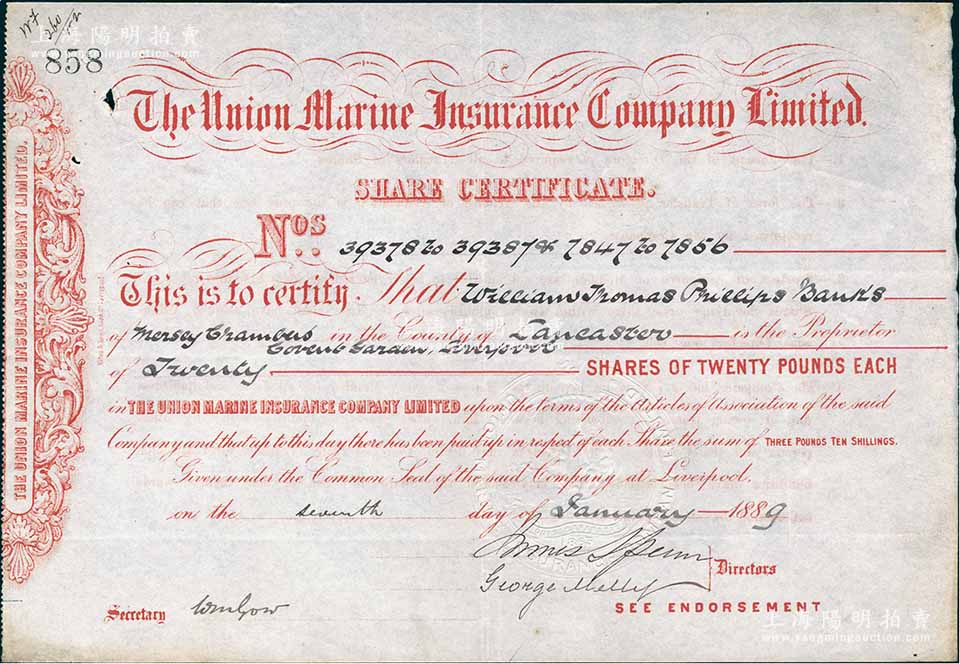 858
上海陽明拍賣
www.yangmingauction.com
The Union Marine Insurance Company Limited.
SHARE CERTIFICATE.
Nos. 39378 to 39387 & 7847 to 7856
This is to certify That William Thomas Phillips Banks
of Mersey Chambers in the County of Lancaster is the Proprietor
Covent Garden, Liverpool
of Twenty SHARES OF TWENTY POUNDS EACH
in THE UNION MARINE INSURANCE COMPANY LIMITED upon the terms of the Articles of Association of the said
Company and that up to this day there has been paid up in respect of each Share the sum of THREE POUNDS TEN SHILLINGS.
Given under the Common Seal of the said Company at Liverpool.
on the seventh day of January 1889
Directors
George Melly
Secretary
SEE ENDORSEMENT
THE UNION MARINE INSURANCE COMPANY LIMITED.
上海陽明拍賣
www.yangmingauction.com